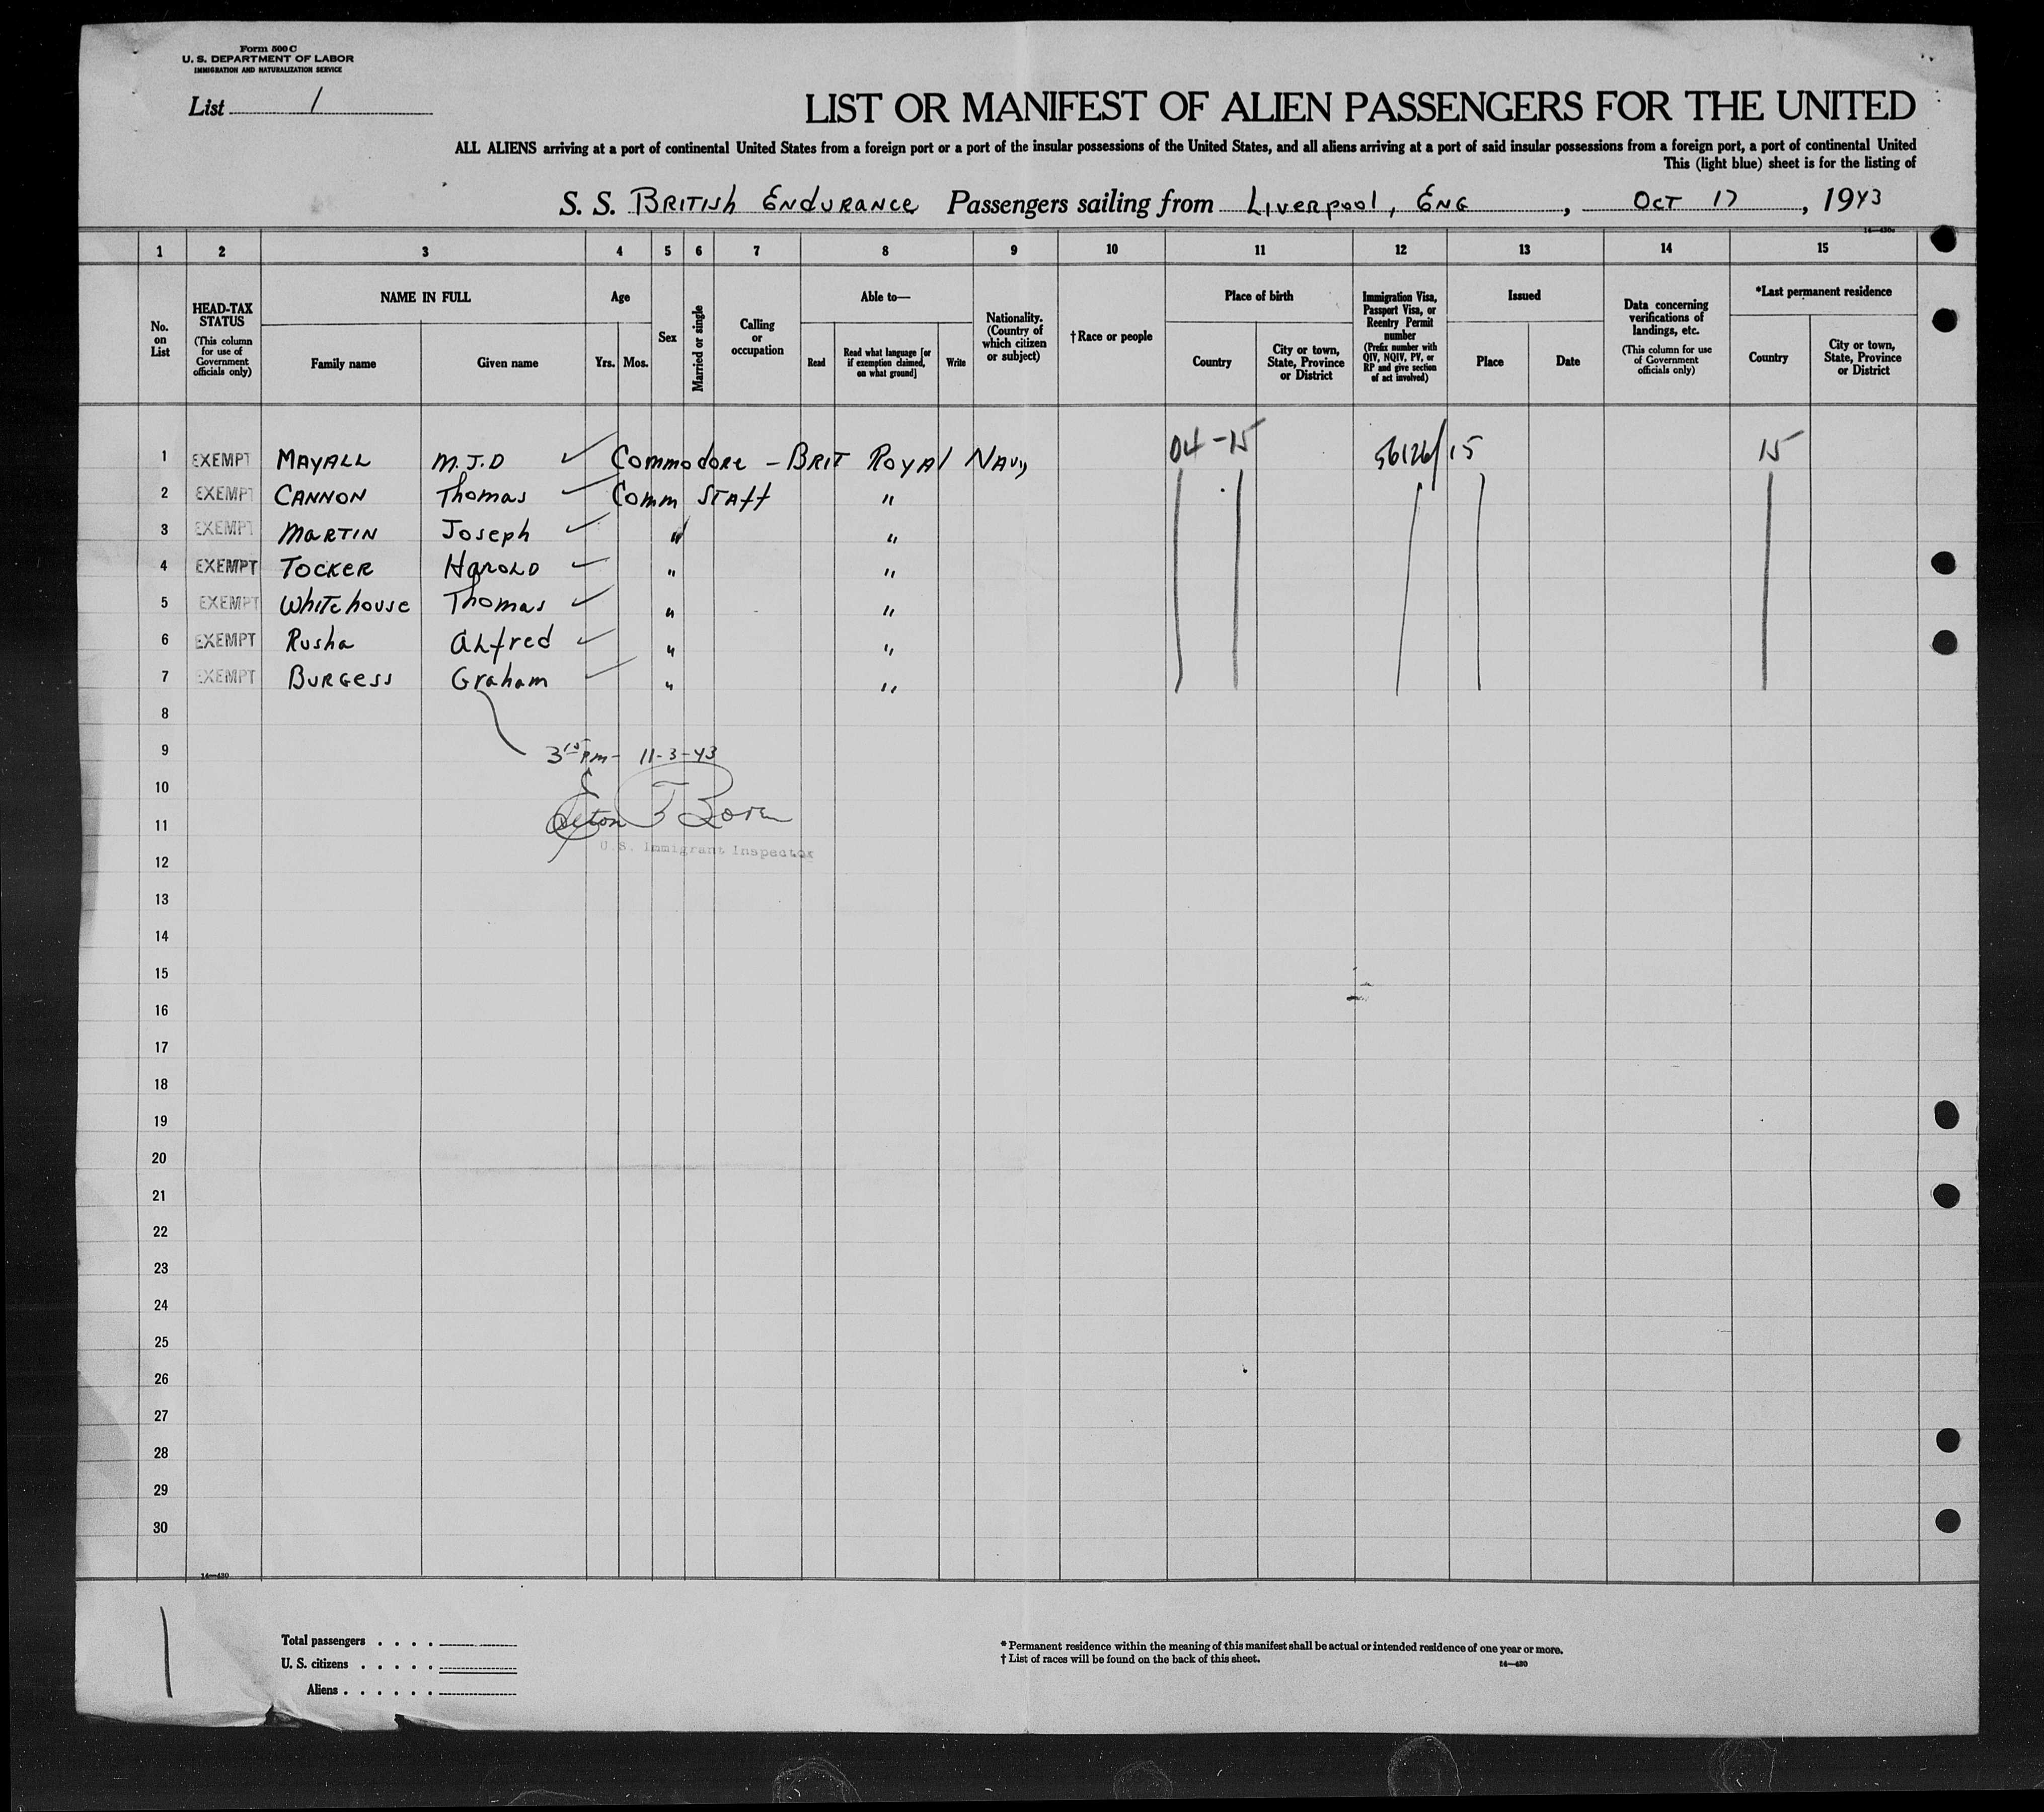 Form 500 C
U. S. DEPARTMENT OF LABOR
IMMIGRATION AND NATURALIZATION SERVICE
List 1
LIST OR MANIFEST OF ALIEN PASSENGERS FOR THE UNITED
ALL ALIENS arriving at a port of continental United States from a foreign port or a port of the insular possessions of the United States, and all aliens arriving at a port of said insular possessions from a foreign port, a port of continental United
This (light blue) sheet is for the listing of
S. S. BRITISH ENDURANCE Passengers sailing from Liverpool, ENG, OCT 17, 1943
1 2 3 4 5 6 7 8 9 10 11 12 13 14 15
No. on List
HEAD-TAX STATUS
(This column for use of Government officials only)
NAME IN FULL
Family name
Given name
Age
Yrs.
Mos.
Sex
Married or single
Calling or occupation
Able to—
Read
Read what language [or if exemption claimed, on what ground]
Write
Nationality. (Country of which citizen or subject)
† Race or people
Place of birth
Country
City or town, State, Province or District
Immigration Visa, Passport Visa, or Reentry Permit number
(Prefix number with QIV, NQIV, PV, or RP and give section of act involved)
Issued
Place
Date
Data concerning verifications of landings, etc.
(This column for use of Government officials only)
*Last permanent residence
Country
City or town, State, Province or District
1 EXEMPT MAYALL M.J.D Commodore - BRIT ROYAL NAVY 04-15 56126/15 15
2 EXEMPT CANNON Thomas Comm STAFF "
3 EXEMPT MARTIN Joseph " "
4 EXEMPT TOCKER HAROLD " "
5 EXEMPT Whitehouse Thomas " "
6 EXEMPT Rusha ALfred " "
7 EXEMPT BURGESS Graham " "
8
9 3 15 PM - 11-3-43
10
11
U.S. Immigrant Inspector
12
13
14
15
16
17
18
19
20
21
22
23
24
25
26
27
28
29
30
14—430
Total passengers . . . .
U. S. citizens . . . . .
Aliens . . . . . .
* Permanent residence within the meaning of this manifest shall be actual or intended residence of one year or more.
† List of races will be found on the back of this sheet.
14—430